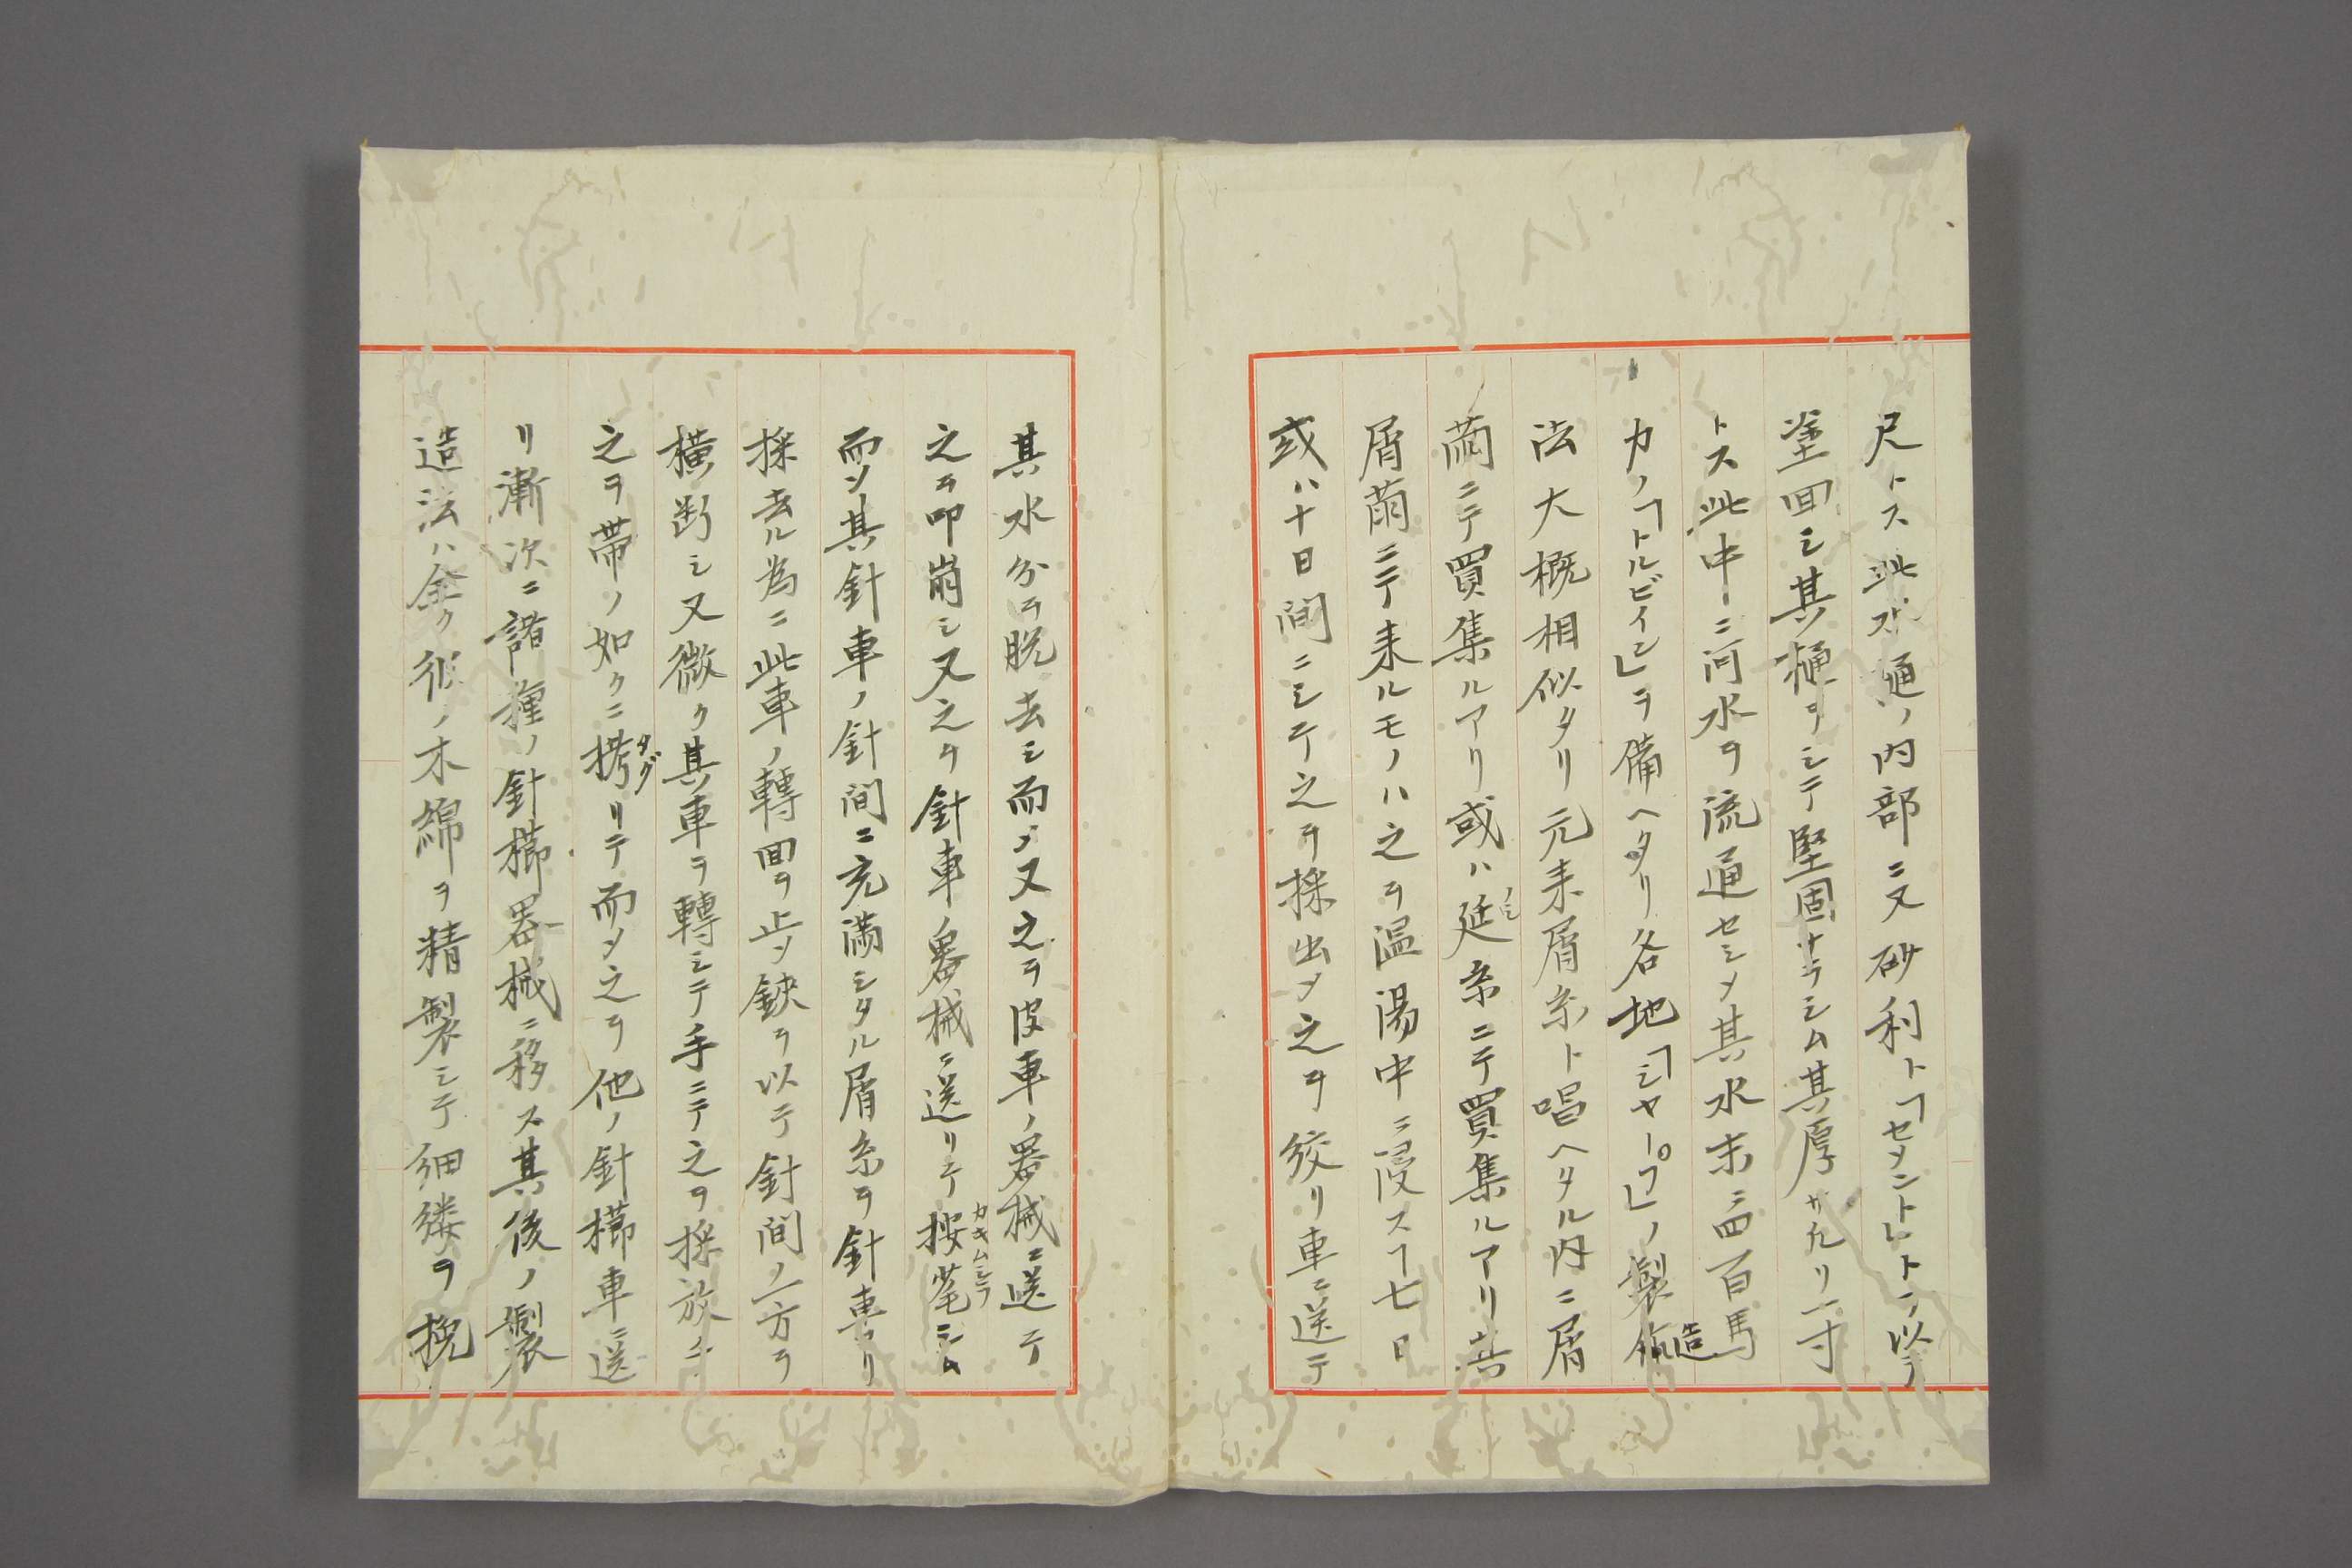 尺トス此水通ノ内部ニ又砂利ト「セメント」トヲ以テ
塗回シ其樋ヲシテ堅固ナラシム其厚サ凡リ一寸
トス此中ニ河水ヲ流通セシメ其水末ニ四百馬
力ノ「トルビイン」ヲ備ヘタリ各地「シヤープ」ノ製造
法大概相似タリ元来屑糸ト唱ヘタル内ニ屑
繭ニテ買集ルアリ或ハ延糸ニテ買集ルアリ其
ノシ
屑繭ニテ来ルモノハ之ヲ温湯中ニ浸スヿ七日
或ハ十日間ニシテ之ヲ採出メ之ヲ絞リ車ニ送テ
其水分ヲ脱去シ而〆又之ヲ皮車ノ器械ニ送テ
之ヲ叩崩シ又之ヲ針車ノ器械ニ送リテ按毟シム
カキムシラ
而〆其針車ノ針間ニ充満シタル屑糸ヲ針車ヨリ
採去ル為ニ此車ノ轉回ヲ止メ鋏ヲ以テ針間ノ一方ヲ
横断シ又微ク其車ヲ轉シテ手ニテ之ヲ採放シ
之ヲ帯ノ如クニ搒リテ而〆之ヲ他ノ針櫛車ニ送
タグ
リ漸次ニ諸種ノ針櫛器械ニ移ス其後ノ製
造法ハ全ク彼ノ木綿ヲ精製シテ細縷ヲ挽